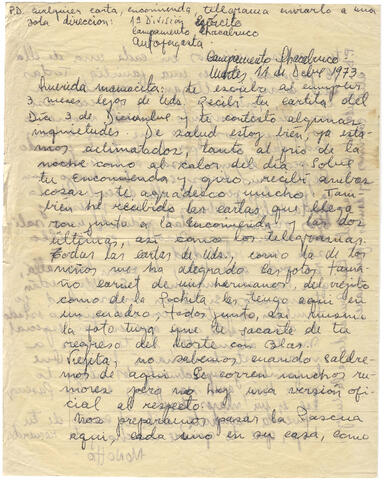 P.D. Cualquier carta, encomienda, telegrama enviarlo a una
sola dirección: 1ª División Ejército
Campamento Chacabuco
Antofagasta.
Campamento Chacabuco
Martes, 11 de Dcbre 1973
Querida mamacita: te escribo al cumplir
3 meses lejos de Uds. Recibí tu cartita del
Día 3 de Diciembre y te contesto algunas
inquietudes. De salud estoy bien, ya esta-
mos aclimatados, tanto al frío de la
noche como al calor del día. Sobre
tu Encomienda y giro, recibí ambas
cosas y te agradesco mucho. Tam
bién he recibido las cartas que llega
ron junto a la Encomienda, y las dos
últimas, así como los telegramas.
Todas las cartas de Uds., como la de los
niños me ha alegrado, las fotos tama-
ño carnet de mis hermanos, del viejito
como de la Pochita las tengo aquí en
un cuadro, todos junto, así mismo
la foto tuya que te sacaste de tu
regreso del Norte con Blas.
Viejita, no sabemos cuando saldre-
mos de aquí. Se corren muchos ru-
mores pero no hay una versión ofi-
cial al respecto.
Nos preparamos pasar la Pascua
aquí, cada uno en su casa, como